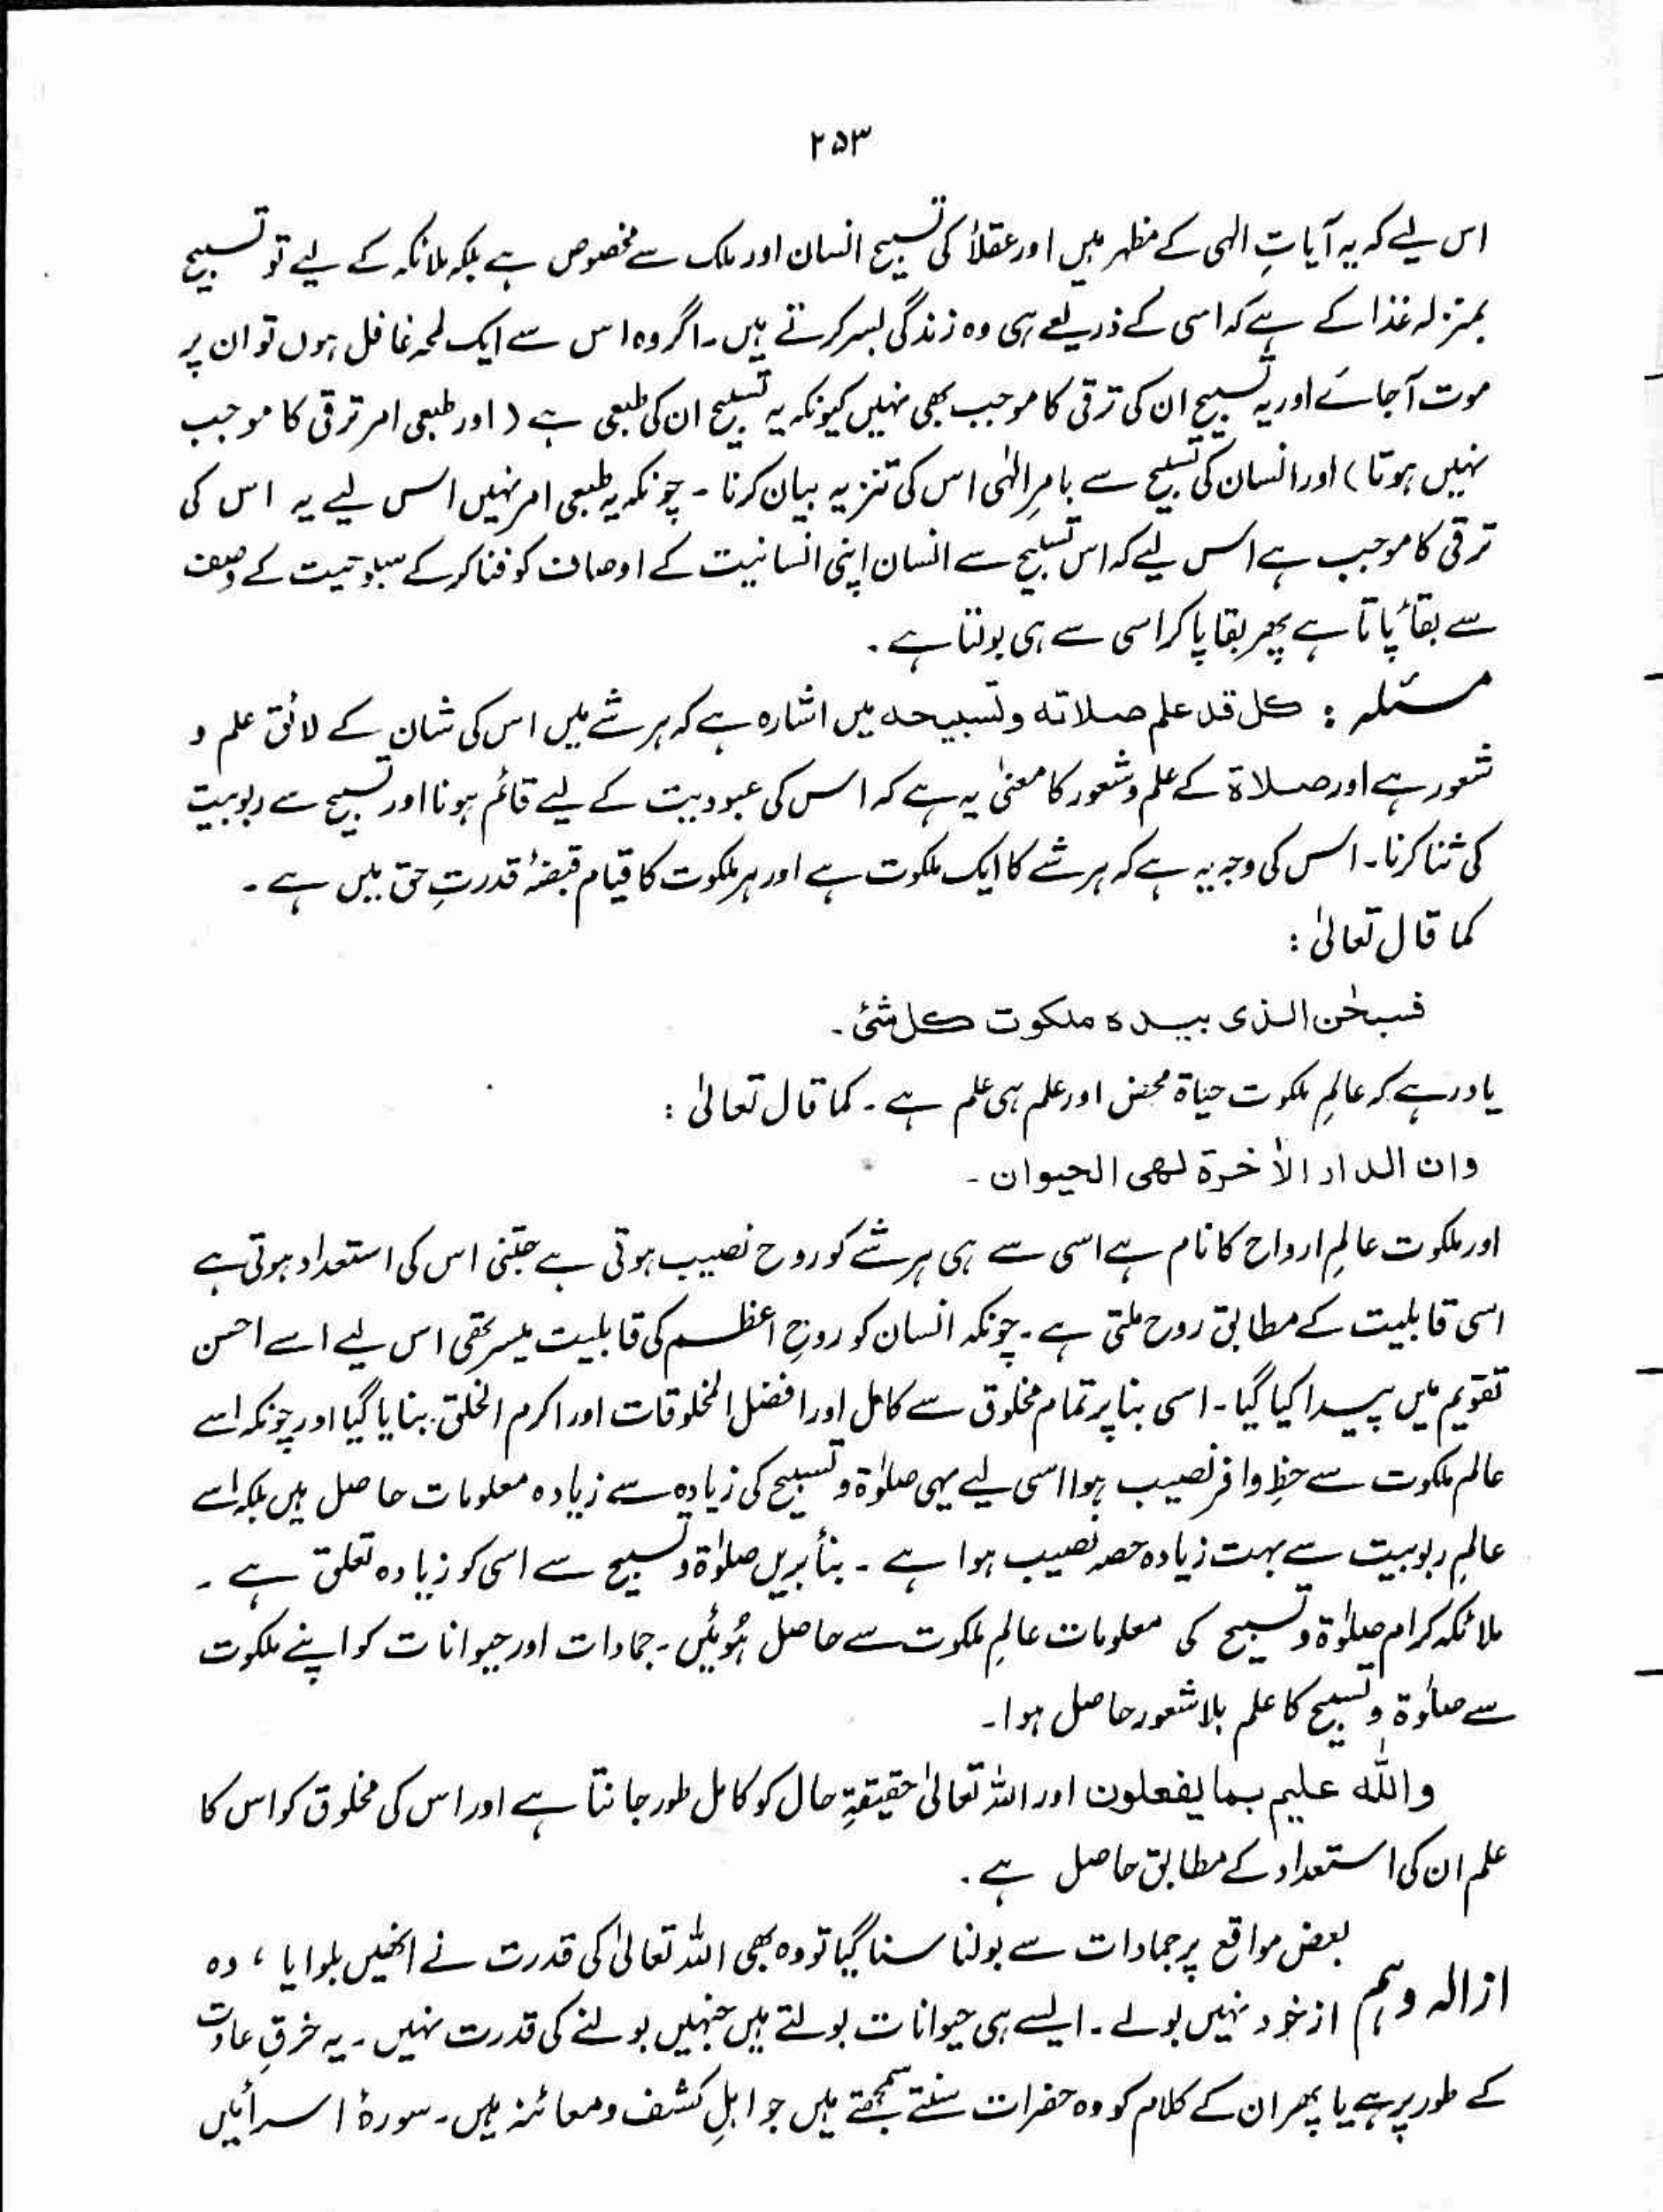 ۲۵۳
اس لیے کہ یہ آیاتِ الٰہی کے مظہر ہیں اور عقلاً کی تسبیح انسان اور ملک سے مخصوص ہے بلکہ ملائکہ کے لیے تو تسبیح
بمنزلہ غذا کے ہے کہ اسی کے ذریعے ہی وہ زندگی بسر کرتے ہیں۔ اگر وہ اس سے ایک لمحہ غافل ہوں تو ان پر
موت آجائے اور یہ تسبیح ان کی ترقی کا موجب بھی نہیں کیونکہ یہ تسبیح ان کی طبعی ہے (اور طبعی امر ترقی کا موجب
نہیں ہوتا) اور انسان کی تسبیح سے بامرِ الٰہی اس کی تنزیہ بیان کرنا۔ چونکہ یہ طبعی امر نہیں اس لیے یہ اس کی
ترقی کا موجب ہے اس لیے کہ اس تسبیح سے انسان اپنی انسانیت کے اوصاف کو فنا کر کے سبوحیت کے وصف
سے بقاءً پاتا ہے پھر بقا پا کر اسی سے ہی بولتا ہے۔
مسئلہ : کل قد علم صلاتہ و تسبیحہ میں اشارہ ہے کہ ہر شے میں اس کی شان کے لائق علم و
شعور ہے اور صلاۃ کے علم و شعور کا معنیٰ یہ ہے کہ اس کی عبودیت کے لیے قائم ہونا اور تسبیح سے ربوبیت
کی ثنا کرنا۔ اس کی وجہ یہ ہے کہ ہر شے کا ایک ملکوت ہے اور ہر ملکوت کا قیام قبضۂ قدرتِ حق میں ہے۔
کما قال تعالیٰ :
فسبحٰن الذی بیدہ ملکوت کل شئ۔
یاد رہے کہ عالمِ ملکوت حیاۃ محض اور علم ہی علم ہے۔ کما قال تعالیٰ :
وان الدار الاٰخرۃ لھی الحیوان۔
اور ملکوت عالمِ ارواح کا نام ہے اسی سے ہی ہر شے کو روح نصیب ہوتی ہے جتنی اس کی استعداد ہوتی ہے
اسی قابلیت کے مطابق روح ملتی ہے۔ چونکہ انسان کو روحِ اعظم کی قابلیت میسر تھی اس لیے اسے احسن
تقویم میں پیدا کیا گیا۔ اسی بنا پر تمام مخلوق سے کامل اور افضل المخلوقات اور اکرم الخلق بنایا گیا اور چونکہ اسے
عالم ملکوت سے حظِ وافر نصیب ہوا اسی لیے یہی صلوٰۃ و تسبیح کی زیادہ سے زیادہ معلومات حاصل ہیں بلکہ اسے
عالمِ ربوبیت سے بہت زیادہ حصہ نصیب ہوا ہے۔ بنأ بریں صلوٰۃ و تسبیح سے اسی کو زیادہ تعلق ہے۔
ملائکہ کرام صلوٰۃ و تسبیح کی معلومات عالمِ ملکوت سے حاصل ہوئیں۔ جمادات اور حیوانات کو اپنے ملکوت
سے صلوٰۃ و تسبیح کا علم بلا شعور حاصل ہوا۔
واللّٰہ علیم بما یفعلون اور اللہ تعالیٰ حقیقۃِ حال کو کامل طور جانتا ہے اور اس کی مخلوق کو اس کا
علم ان کی استعداد کے مطابق حاصل ہے۔
بعض مواقع پر جمادات سے بولنا سنا گیا تو وہ بھی اللہ تعالیٰ کی قدرت نے انھیں بلوایا ، وہ
ازالہ وہم از خود نہیں بولے۔ ایسے ہی حیوانات بولتے ہیں جنہیں بولنے کی قدرت نہیں۔ یہ خرقِ عادت
کے طور پر ہے یا پھر ان کے کلام کو وہ حضرات سنتے سمجھتے ہیں جو اہلِ کشف و معائنہ ہیں۔ سورۂ اسرأ میں